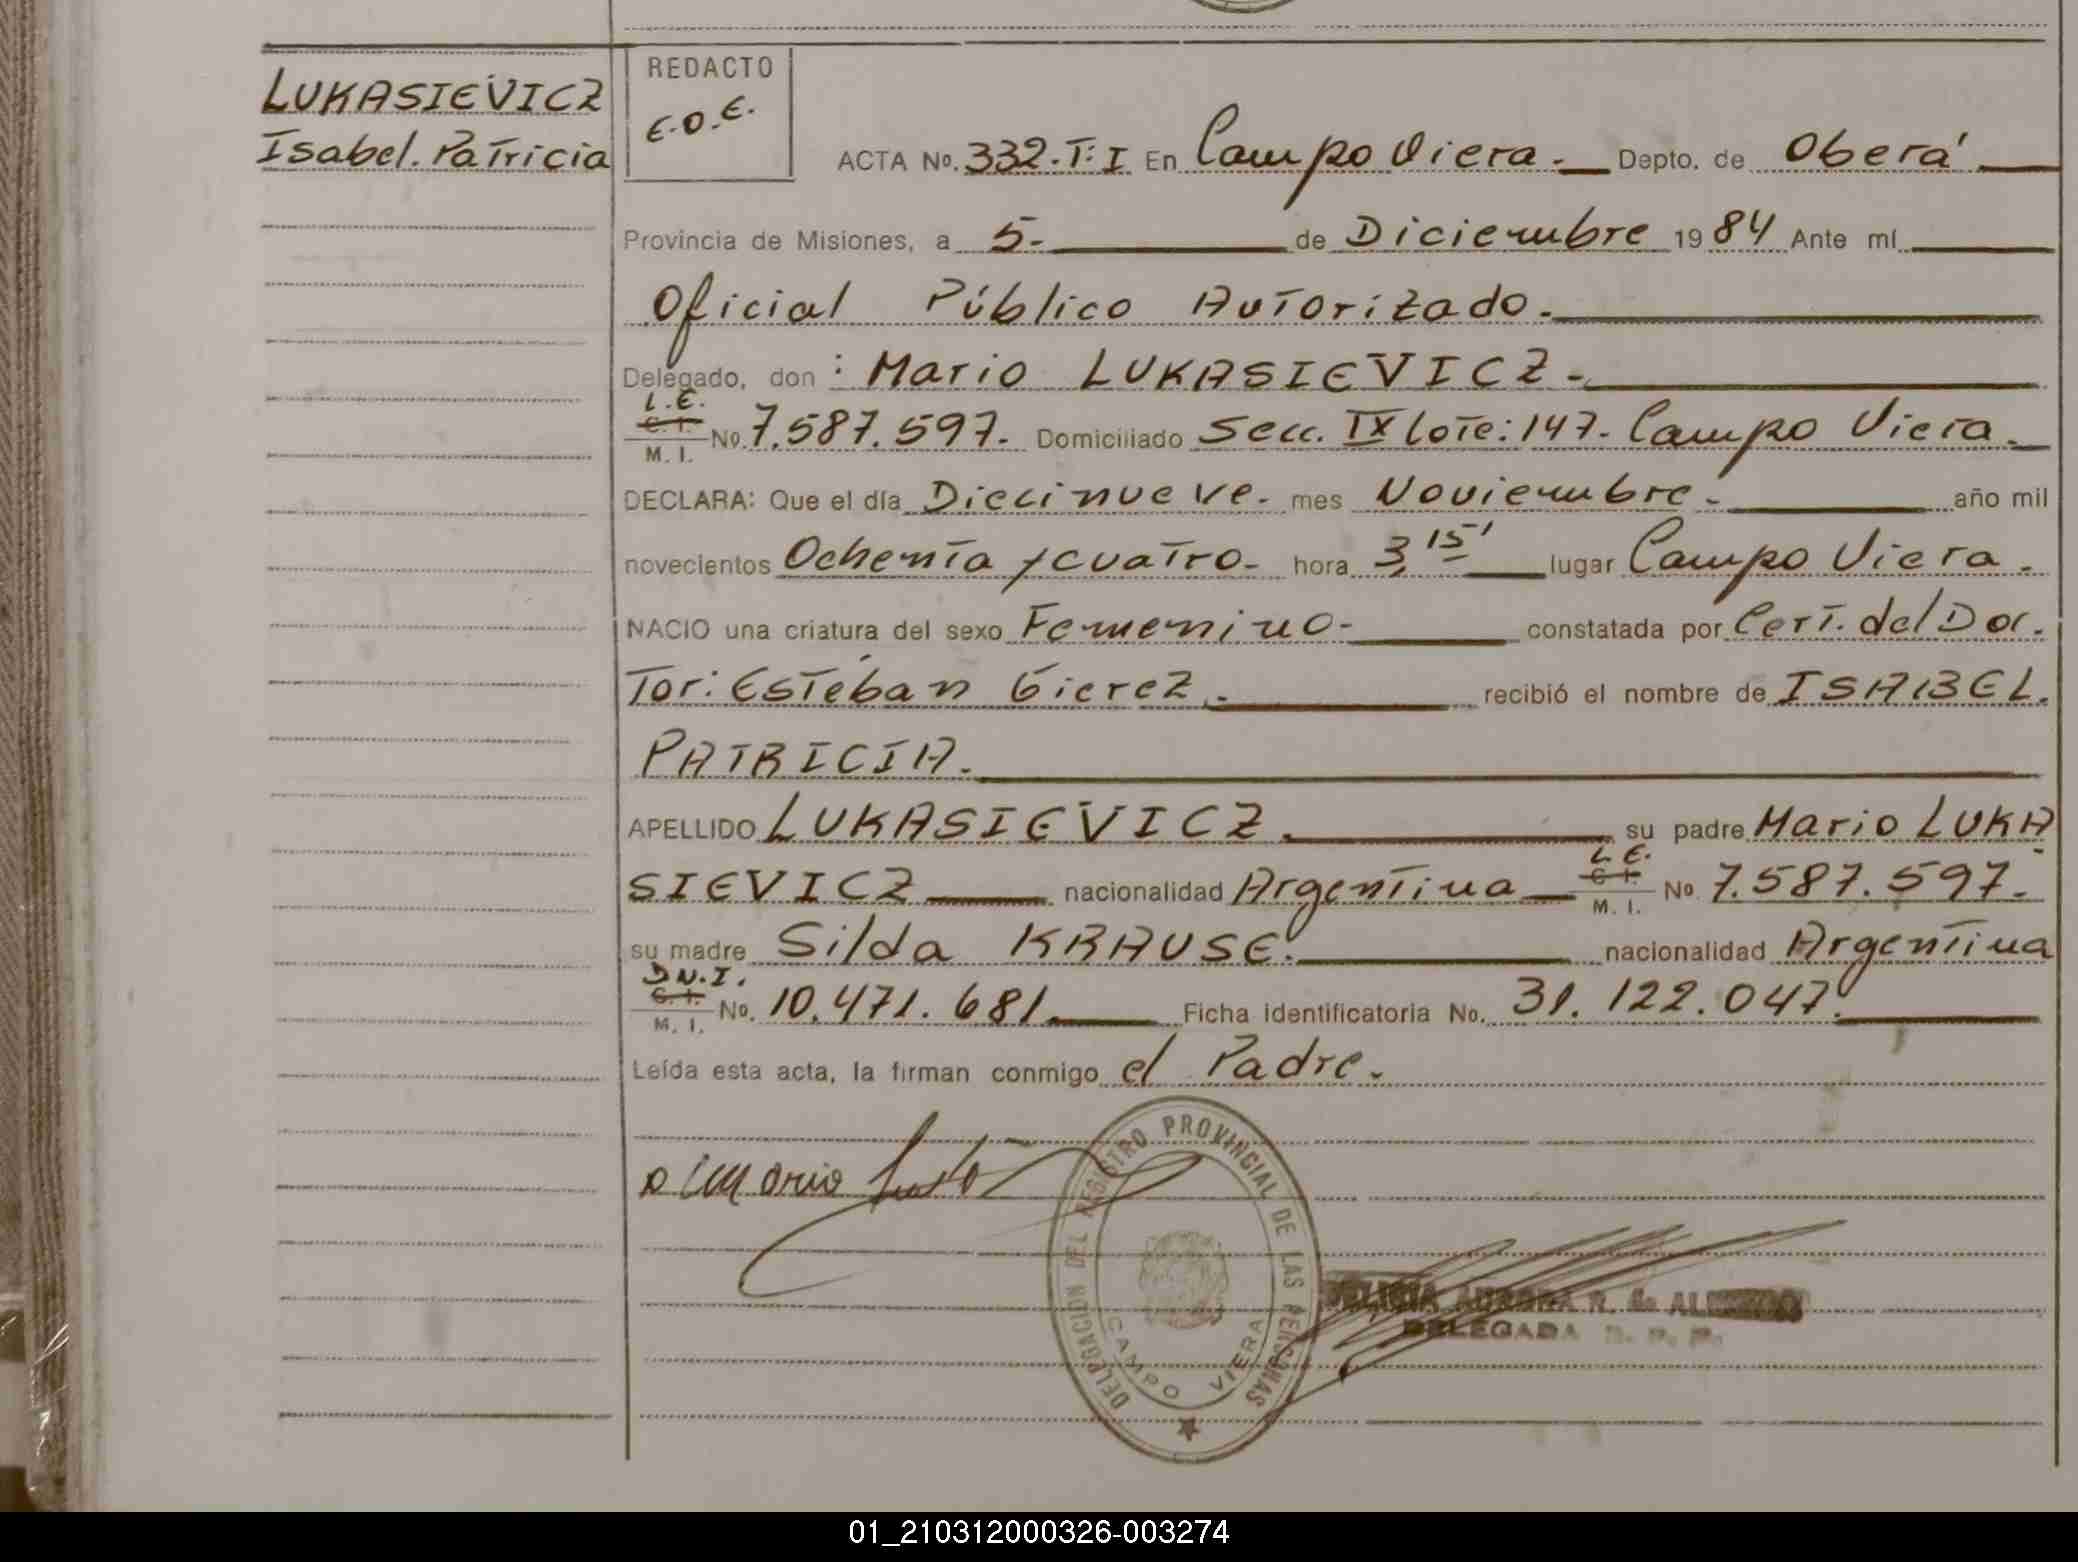 LUKASIEVICZ
Isabel. Patricia
REDACTO
E.O.E.
ACTA No. 332. T: I En Campo Viera. Depto. de Oberá
Provincia de Misiones, a 5- de Diciembre 1984 Ante mí
Oficial Público Autorizado.
Delegado, don: Mario LUKASIEVICZ-
L.E.
C. I.
M. I.
No. 7.587.597. Domiciliado Secc. IX Lote: 147. Campo Viera.
DECLARA: Que el día Diecinueve. mes Noviembre. año mil
novecientos Ochenta y cuatro- hora 3,15' lugar Campo Viera.
NACIO una criatura del sexo Femenino- constatada por Cert. del Doc.
Tor: Esteban Gierez. recibió el nombre de ISABEL.
PATRICIA.
APELLIDO LUKASIEVICZ. su padre Mario LUKA
SIEVICZ nacionalidad Argentina L.E. C. I. M. I. No. 7.587.597.
su madre Silda KRAUSE. nacionalidad Argentina
D.N.I.
C. I.
M. I.
No. 10.471.681 Ficha identificatoria No. 31.122.047.
Leída esta acta, la firman conmigo el Padre.
DELEGACION DEL REGISTRO PROVINCIAL DE LAS PERSONAS
CAMPO VIERA
AURORA R. de
DELEGADA R. P. P.
01_210312000326-003274